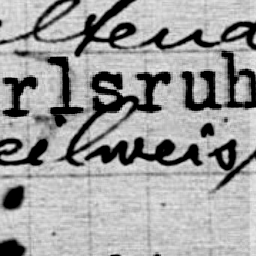 ltend
rlsruh
eilweis